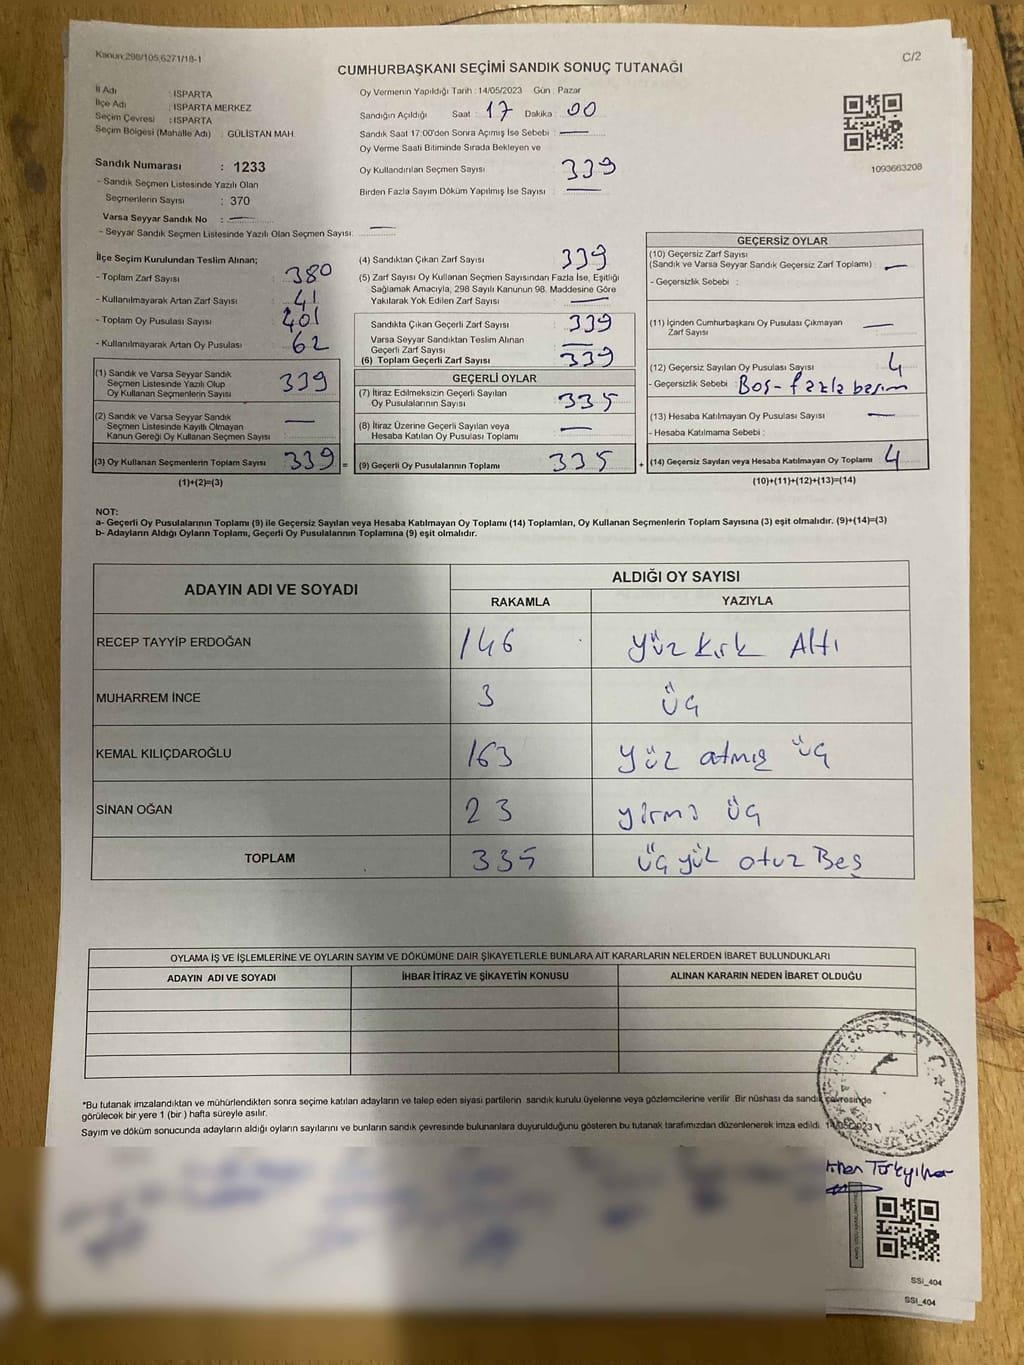 Kanun:298/105,6271/18-1
C/2
CUMHURBAŞKANI SEÇİMİ SANDIK SONUÇ TUTANAĞI
İl Adı : ISPARTA
İlçe Adı : ISPARTA MERKEZ
Seçim Çevresi : ISPARTA
Seçim Bölgesi (Mahalle Adı) : GÜLİSTAN MAH.
Sandık Numarası : 1233
- Sandık Seçmen Listesinde Yazılı Olan
Seçmenlerin Sayısı : 370
Varsa Seyyar Sandık No : —
- Seyyar Sandık Seçmen Listesinde Yazılı Olan Seçmen Sayısı: —
Oy Vermenin Yapıldığı Tarih : 14/05/2023 Gün : Pazar
Sandığın Açıldığı Saat : 17 Dakika : 00
Sandık Saat 17:00'den Sonra Açımış İse Sebebi : —
Oy Verme Saati Bitiminde Sırada Bekleyen ve
Oy Kullandırılan Seçmen Sayısı 339
Birden Fazla Sayım Döküm Yapılmış İse Sayısı : —
1093663208
İlçe Seçim Kurulundan Teslim Alınan;
- Toplam Zarf Sayısı : 380
- Kullanılmayarak Artan Zarf Sayısı : 41
- Toplam Oy Pusulası Sayısı : 401
- Kullanılmayarak Artan Oy Pusulası : 62
(1) Sandık ve Varsa Seyyar Sandık
Seçmen Listesinde Yazılı Olup
Oy Kullanan Seçmenlerin Sayısı 339
(2) Sandık ve Varsa Seyyar Sandık
Seçmen Listesinde Kayıtlı Olmayan
Kanun Gereği Oy Kullanan Seçmen Sayısı : —
(3) Oy Kullanan Seçmenlerin Toplam Sayısı 339 =
(1)+(2)=(3)
(4) Sandıktan Çıkan Zarf Sayısı 339
(5) Zarf Sayısı Oy Kullanan Seçmen Sayısından Fazla İse, Eşitliği
Sağlamak Amacıyla, 298 Sayılı Kanunun 98. Maddesine Göre
Yakılarak Yok Edilen Zarf Sayısı —
Sandıkta Çıkan Geçerli Zarf Sayısı : 339
Varsa Seyyar Sandıktan Teslim Alınan
Geçerli Zarf Sayısı —
(6) Toplam Geçerli Zarf Sayısı 339
GEÇERLİ OYLAR
(7) İtiraz Edilmeksizin Geçerli Sayılan
Oy Pusulalarının Sayısı 335
(8) İtiraz Üzerine Geçerli Sayılan veya
Hesaba Katılan Oy Pusulası Toplamı —
(9) Geçerli Oy Pusulalarının Toplamı 335 +
GEÇERSİZ OYLAR
(10) Geçersiz Zarf Sayısı
(Sandık ve Varsa Seyyar Sandık Geçersiz Zarf Toplamı) : —
- Geçersizlik Sebebi :
(11) İçinden Cumhurbaşkanı Oy Pusulası Çıkmayan
Zarf Sayısı —
(12) Geçersiz Sayılan Oy Pusulası Sayısı 4
- Geçersizlik Sebebi : Boş- fazla basım
(13) Hesaba Katılmayan Oy Pusulası Sayısı —
- Hesaba Katılmama Sebebi :
(14) Geçersiz Sayılan veya Hesaba Katılmayan Oy Toplamı 4
(10)+(11)+(12)+(13)=(14)
NOT:
a- Geçerli Oy Pusulalarının Toplamı (9) ile Geçersiz Sayılan veya Hesaba Katılmayan Oy Toplamı (14) Toplamları, Oy Kullanan Seçmenlerin Toplam Sayısına (3) eşit olmalıdır. (9)+(14)=(3)
b- Adayların Aldığı Oyların Toplamı, Geçerli Oy Pusulalarının Toplamına (9) eşit olmalıdır.
ADAYIN ADI VE SOYADI ALDIĞI OY SAYISI
RAKAMLA YAZIYLA
RECEP TAYYİP ERDOĞAN 146 yüz kırk Altı
MUHARREM İNCE 3 üç
KEMAL KILIÇDAROĞLU 163 yüz atmış üç
SİNAN OĞAN 23 yirmi üç
TOPLAM 335 üç yüz otuz Beş
OYLAMA İŞ VE İŞLEMLERİNE VE OYLARIN SAYIM VE DÖKÜMÜNE DAİR ŞİKAYETLERLE BUNLARA AİT KARARLARIN NELERDEN İBARET BULUNDUKLARI
ADAYIN ADI VE SOYADI İHBAR İTİRAZ VE ŞİKAYETİN KONUSU ALINAN KARARIN NEDEN İBARET OLDUĞU
*Bu tutanak imzalandıktan ve mühürlendikten sonra seçime katılan adayların ve talep eden siyasi partilerin sandık kurulu üyelerine veya gözlemcilerine verilir. Bir nüshası da sandık çevresinde
görülecek bir yere 1 (bir) hafta süreyle asılır.
Sayım ve döküm sonucunda adayların aldığı oyların sayılarını ve bunların sandık çevresinde bulunanlara duyurulduğunu gösteren bu tutanak tarafımızdan düzenlenerek imza edildi. 14/05/2023
SSİ_404
SSİ_404